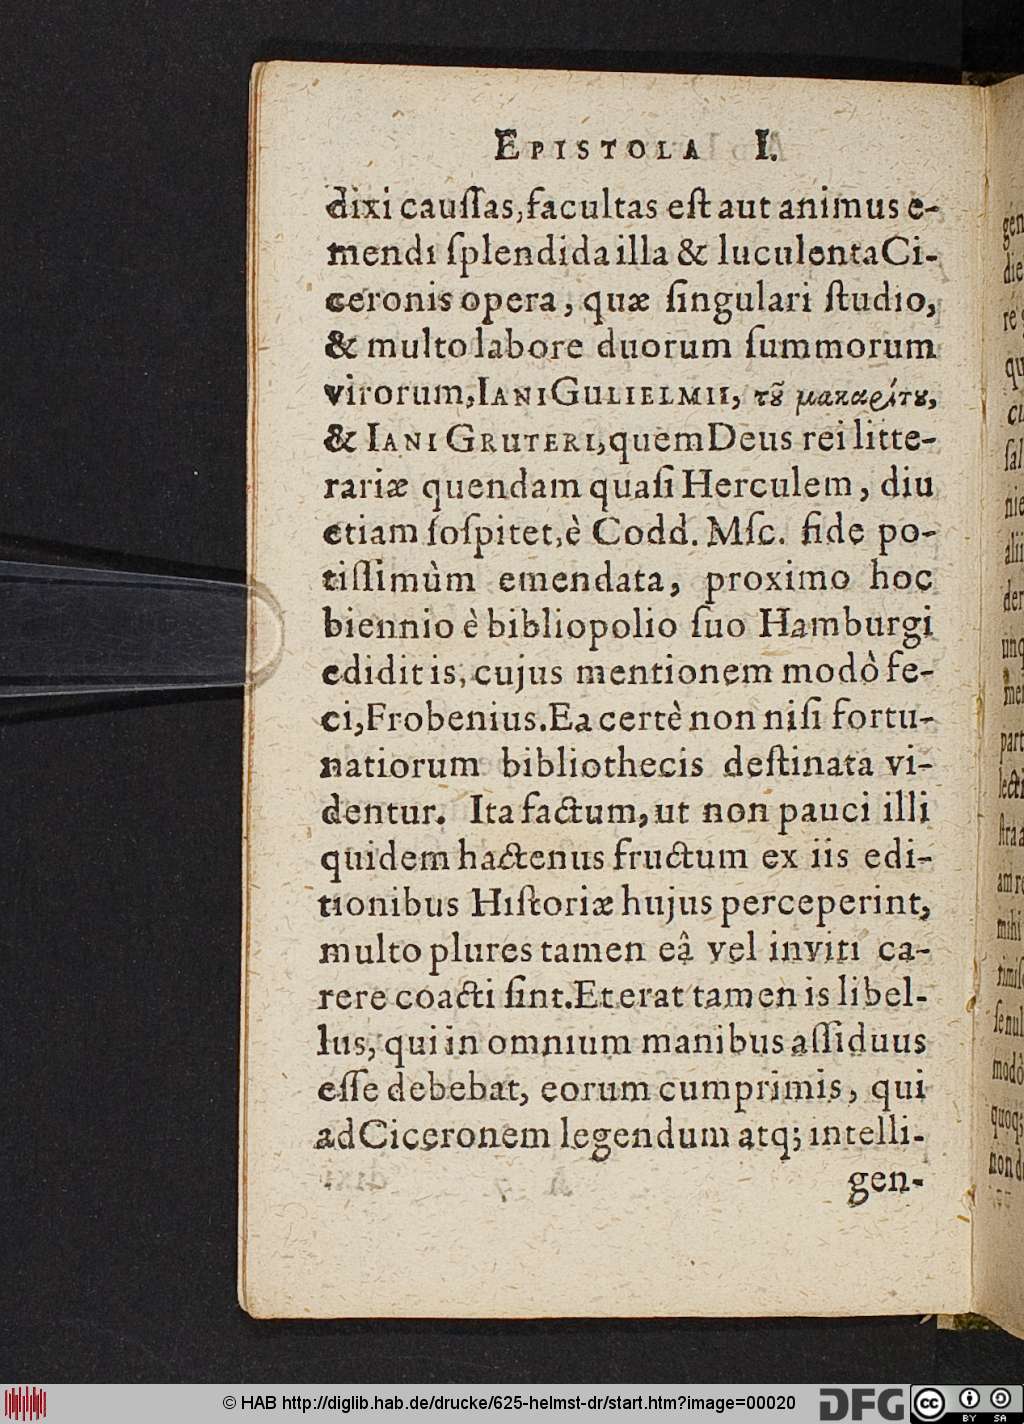 EPISTOLA I.
dixi cauſſas, facultas eſt aut animus e-
mendi ſplendida illa & luculenta Ci-
ceronis opera, quæ ſingulari ſtudio,
& multo labore duorum ſummorum
virorum, IANI GULIELMII, τȣ͂ μακαρίτȣ,
& IANI GRUTERI, quem Deus rei litte-
rariæ quendam quaſi Herculem, diu
etiam ſoſpitet, è Codd. Mſc. fide po-
tiſſimùm emendata, proximo hoc
biennio è bibliopolio ſuo Hamburgi
edidit is, cujus mentionem modò fe-
ci, Frobenius. Ea certè non niſi fortu-
natiorum bibliothecis deſtinata vi-
dentur. Ita factum, ut non pauci illi
quidem hactenus fructum ex iis edi-
tionibus Hiſtoriæ hujus perceperint,
multo plures tamen eâ vel inviti ca-
rere coacti ſint. Et erat tamen is libel-
lus, qui in omnium manibus aſſiduus
eſſe debebat, eorum cumprimis, qui
ad Ciceronem legendum atq; intelli-
gen-
© HAB http://diglib.hab.de/drucke/625-helmst-dr/start.htm?image=00020
DFG
cc
BY SA